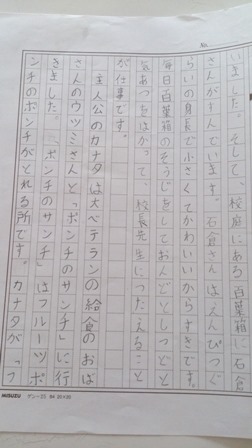 いました。そして、校庭にある百葉箱に石倉
さんがすんでいます。石倉さんはえんぴつぐ
らいの身長で小さくてかわいいからすきです。
毎日百葉箱のそうじをしておんどとしつどと
気あつをはかって、校長先生につたえること
が仕事です。
主人公のカナタは大ベテランの給食のおば
さんのウツミさんと「ポンチのサンチ」に行
きました。「ポンチのサンチ」はフルーツポ
ンチのポンチがとれる所です。カナタが「フ
MISUZU ゲン-23 B4 20×20